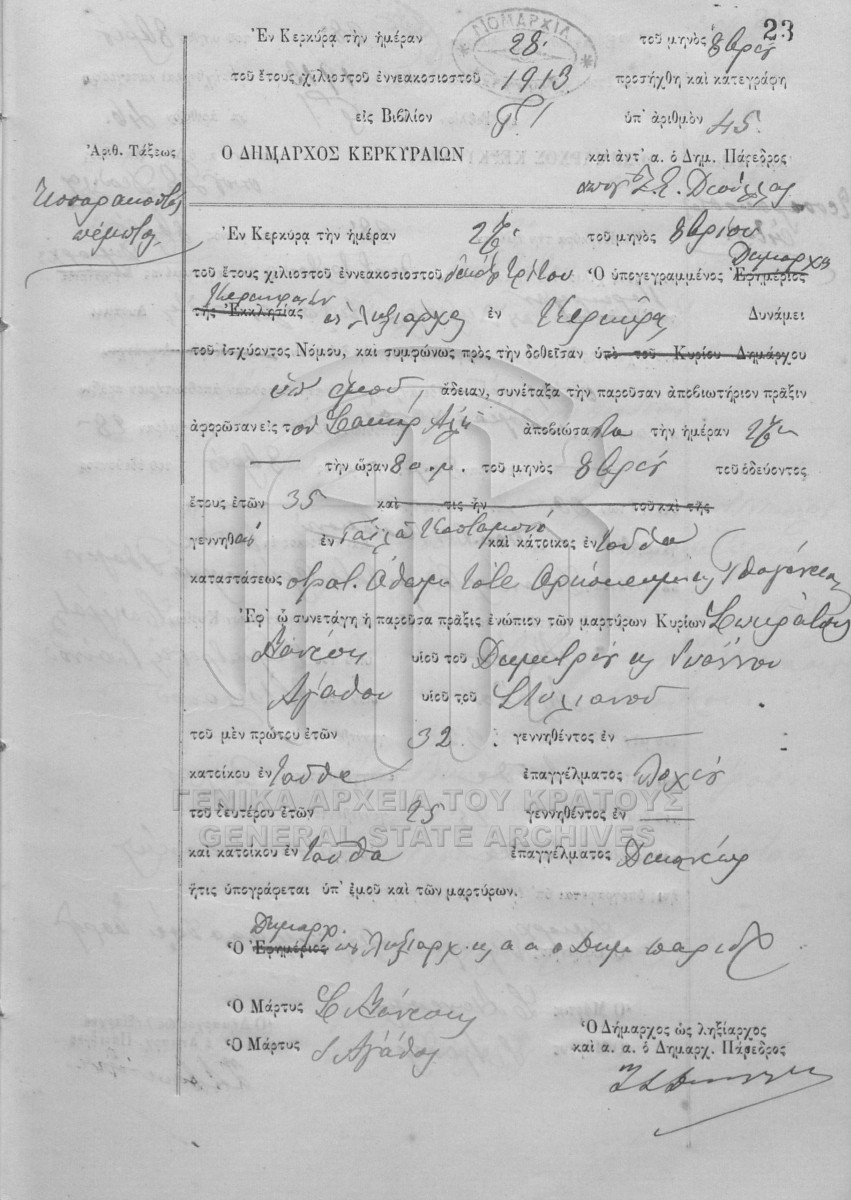 23
Ἐν Κερκύρᾳ τὴν ἡμέραν 28 τοῦ μηνὸς 8βρίου
τοῦ ἔτους χιλιοστοῦ ἐννεακοσιοστοῦ 1913 προσήχθη καὶ κατεγράφη
εἰς Βιβλίον ὑπ' ἀριθμὸν 45
Ἀριθ. Τάξεως
Ὁ ΔΗΜΑΡΧΟΣ ΚΕΡΚΥΡΑΙΩΝ καὶ ἀντ' α. ὁ Δημ. Πάρεδρος
Τεσσαρακοστὸς
πέμπτος
Ἐν Κερκύρᾳ τὴν ἡμέραν τοῦ μηνὸς 8βρίου
Δήμαρχος
τοῦ ἔτους χιλιοστοῦ ἐννεακοσιοστοῦ δεκάτου τρίτου Ὁ ὑπογεγραμμένος Ἐφημέριος
Κερκυραίων
τῆς Ἐκκλησίας ὡς Ληξίαρχος ἐν Κερκύρᾳ Δυνάμει
τοῦ ἰσχύοντος Νόμου, καὶ συμφώνως πρὸς τὴν δοθεῖσαν ὑπὸ τοῦ Κυρίου Δημάρχου
ὑπ' ἐμοῦ, ἄδειαν, συνέταξα τὴν παροῦσαν ἀποβιωτήριον πρᾶξιν
ἀφορῶσαν εἰς τὸν Σακὴρ Ἀλῆ ἀποβιώσαντα τὴν ἡμέραν
τὴν ὥραν 8 α.μ. τοῦ μηνὸς 8βρίου τοῦ ὁδεύοντος
ἔτους ἐτῶν 35 καὶ τις ἦν τοῦ καὶ τῆς
γεννηθὲν ἐν Κασταμονὸ καὶ κάτοικος ἐνταῦθα
καταστάσεως στρατ.
Ἐφ' ᾧ συνετάγη ἡ παροῦσα πρᾶξις ἐνώπιον τῶν μαρτύρων Κυρίων Σωκράτης
υἱοῦ τοῦ Δημητρίου κ Ἰωάννου
Ἀγάθου υἱοῦ τοῦ Στυλιανοῦ
τοῦ μὲν πρώτου ἐτῶν 32 γεννηθέντος ἐν
κατοίκου ἐνταῦθα ἐπαγγέλματος Λοχίου
τοῦ δευτέρου ἐτῶν 25 γεννηθέντος ἐν
καὶ κατοίκου ἐνταῦθα ἐπαγγέλματος Δεκανέως
ἥτις ὑπογράφεται ὑπ' ἐμοῦ καὶ τῶν μαρτύρων.
Δημαρχ.
Ὁ Ἐφημέριος ὡς Ληξίαρχ κ α α ο Δημ παρεδρ
Ὁ Μάρτυς
Ὁ Μάρτυς Ι Ἀγάθος
Ὁ Δήμαρχος ὡς ληξίαρχος
καὶ α. α. ὁ Δημαρχ. Πάρεδρος
ΓΕΝΙΚΑ ΑΡΧΕΙΑ ΤΟΥ ΚΡΑΤΟΥΣ
GENERAL STATE ARCHIVES